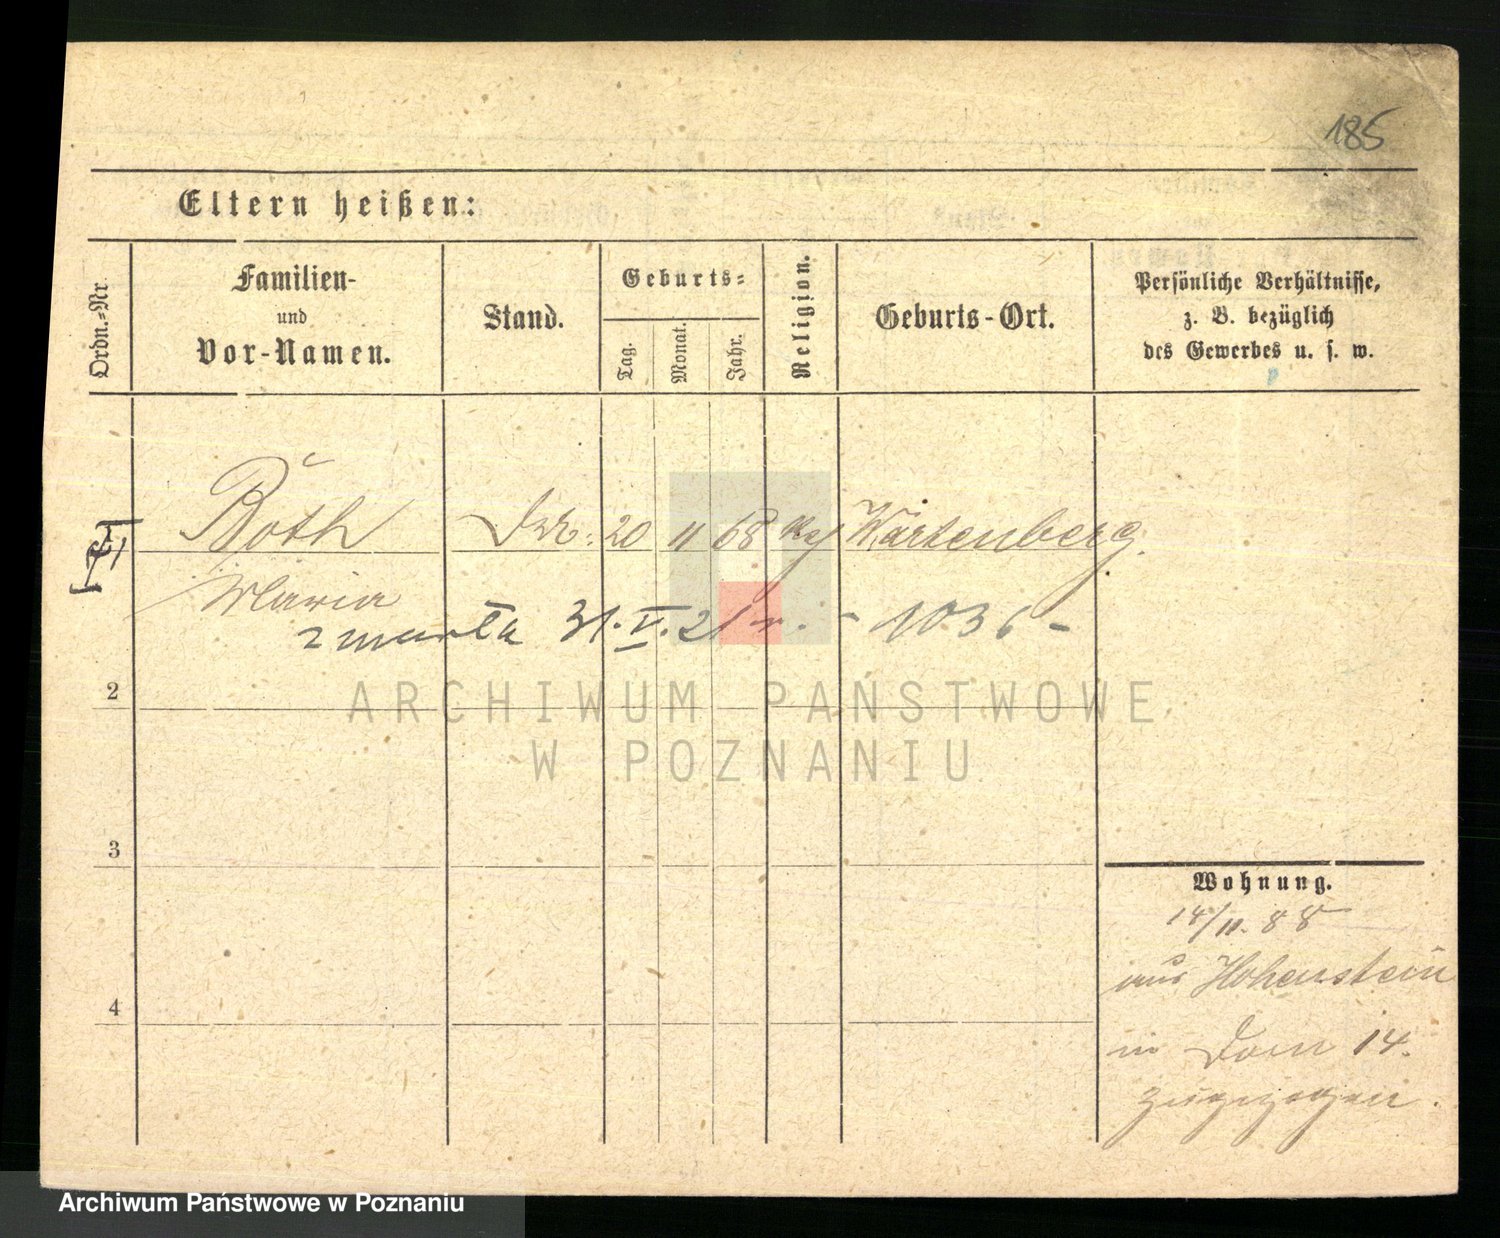 185
Eltern heißen:
Ordn.-Nr.
Familien-
und
Vor-Namen.
Stand.
Geburts-
Tag.
Monat.
Jahr.
Religion.
Geburts-Ort.
Persönliche Verhältnisse,
z. B. bezüglich
des Gewerbes u. s. w.
Böth 20 11 68 Wartenberg.
Maria
zmarła 31. V. 21 r. - 1036 -
2
3
4
ARCHIWUM PAŃSTWOWE
W POZNANIU
Wohnung.
14/11. 88
aus Hohenstein
in Dom 14.
zugezogen.
Archiwum Państwowe w Poznaniu